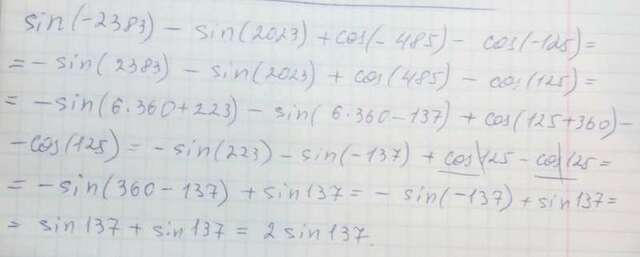 sin(-2383) - sin(2023) + cos(-485) - cos(-125) =
= - sin(2383) - sin(2023) + cos(485) - cos(125) =
= - sin(6·360+223) - sin(6·360-137) + cos(125+360) -
- cos(125) = - sin(223) - sin(-137) + cos 125 - cos 125 =
= - sin(360-137) + sin137 = - sin(-137) + sin137 =
= sin137 + sin137 = 2 sin137.